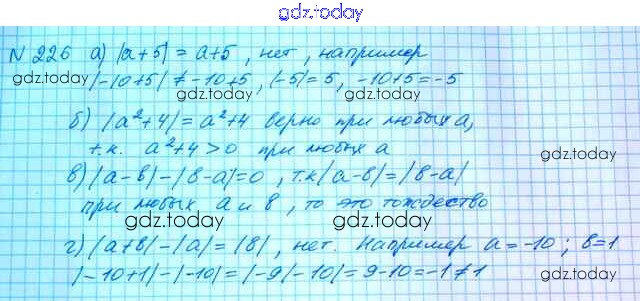 gdz.today
N 226 а) |a+5| = a+5, нет, например
gdz.today gdz.today gdz.today
|-10+5| ≠ -10+5, |-5| = 5, -10+5 = -5
б) |a²+4| = a²+4 верно при любых a,
gdz.today
т.к. a²+4>0 при любых a
gdz.today
в) |a-в|-|в-a|=0, т.к |a-в|=|в-a|
при любых a и в, то это тождество
gdz.today gdz.today
г) |a+в|-|a|=|в|, нет. Например a=-10; в=1
gdz.today
|-10+1|-|-10|=|-9|-10|=9-10=-1≠1
gdz.today